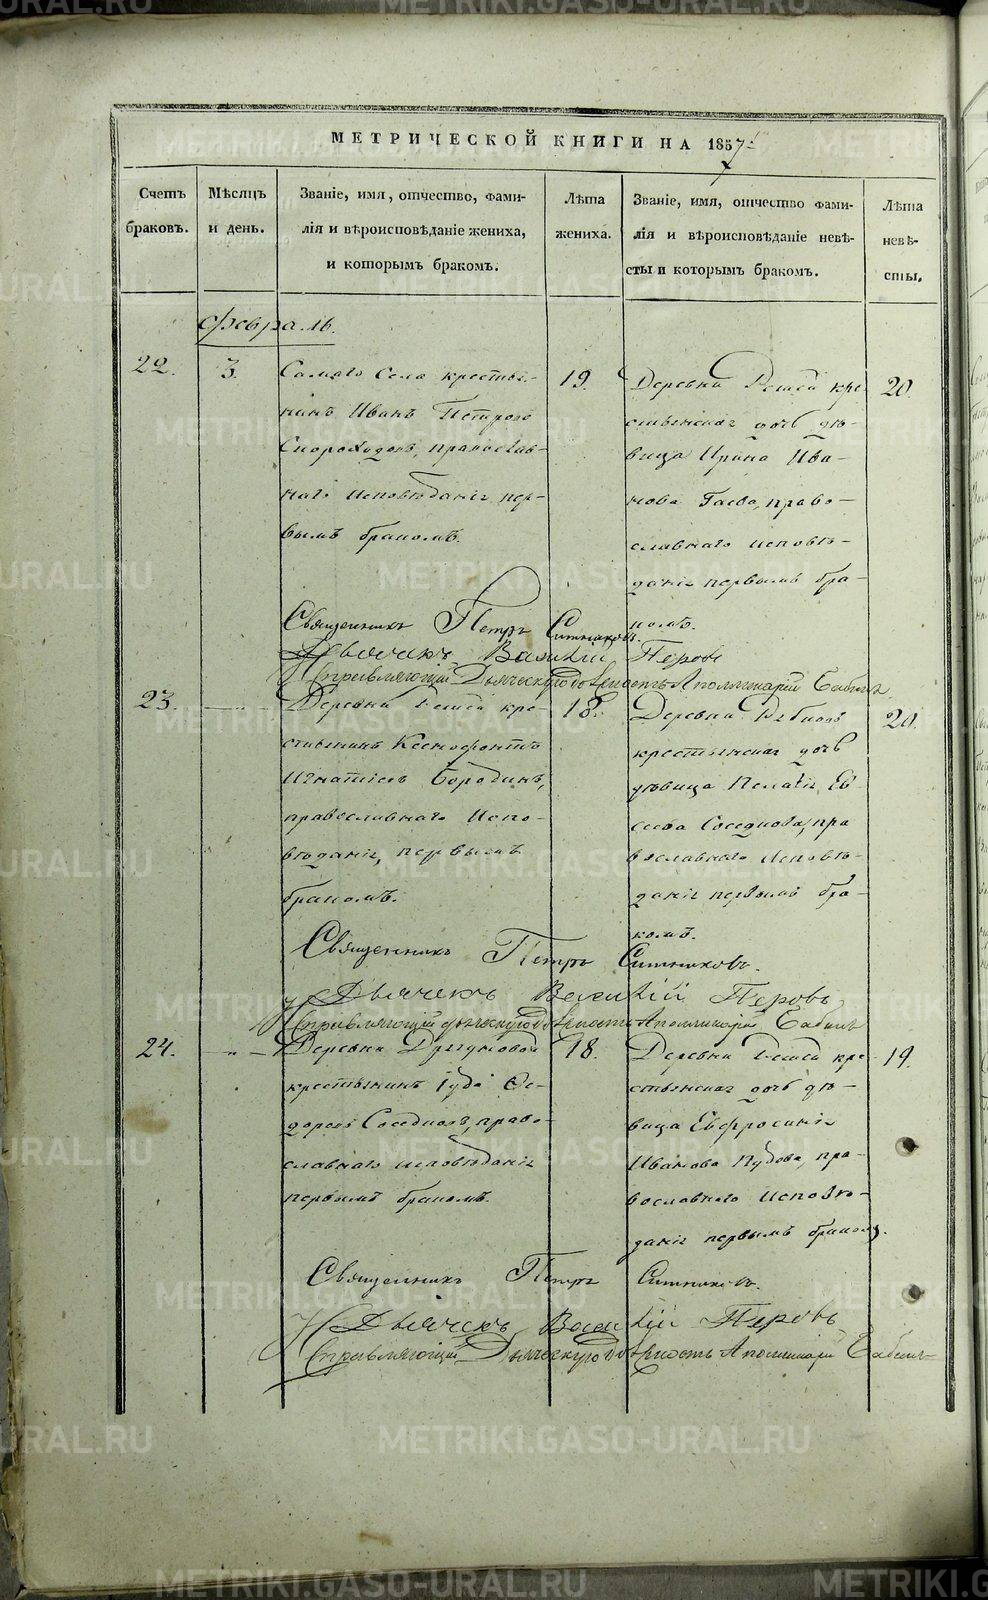 МЕТРИЧЕСКОЙ КНИГИ НА 1857
Счетъ браковъ.
Мѣсяцъ и день.
Званіе, имя, отчество, фами-
лія и вѣроисповѣданіе жениха,
и которымъ бракомъ.
Лѣта
жениха.
Званіе, имя, отчество фами-
лія и вѣроисповѣданіе невѣ-
сты и которымъ бракомъ.
Лѣта
невѣ-
сты.
Февраль.
22.
3.
Самаго Села крестья-
нинъ Иванъ Петровъ
Скороходовъ, православ-
наго исповѣданія пер-
вымъ бракомъ.
19.
Деревни кре-
стьянская дочь дѣ-
вица Ирина Ива-
нова Гаева, право-
славнаго исповѣ-
данія первымъ бра-
комъ.
20.
Священникъ Петръ Ситниковъ.
Дьячекъ Василій Перовъ
Исправляющій Дьяческую должность Аполлинарій
23.
Деревни кре-
стьянинъ Ксенофонтъ
Игнатьевъ Бородинъ,
православнаго Испо-
вѣданія, первымъ
бракомъ.
18.
Деревни
крестьянская дочь
дѣвица Пелагія Ев-
сеева Соседкова, пра
вославнаго Исповѣ-
данія первымъ бра-
комъ.
20.
Священникъ Петръ Ситниковъ.
Дьячекъ Василій Перовъ
Исправляющій дьяческую должность Аполлинарій
24.
Деревни
крестьянинъ Іуда Ѳе-
доровъ право-
славнаго исповѣданія
первымъ бракомъ.
18.
Деревни кре-
стьянская дочь дѣ-
вица Евфросинія
Иванова пра-
вославнаго Исповѣ-
данія первымъ бракомъ.
19.
Священникъ Петръ Ситниковъ.
Дьячекъ Василій Перовъ
Исправляющій Дьяческую должность Аполлинарій
METRIKI.GASO-URAL.RU